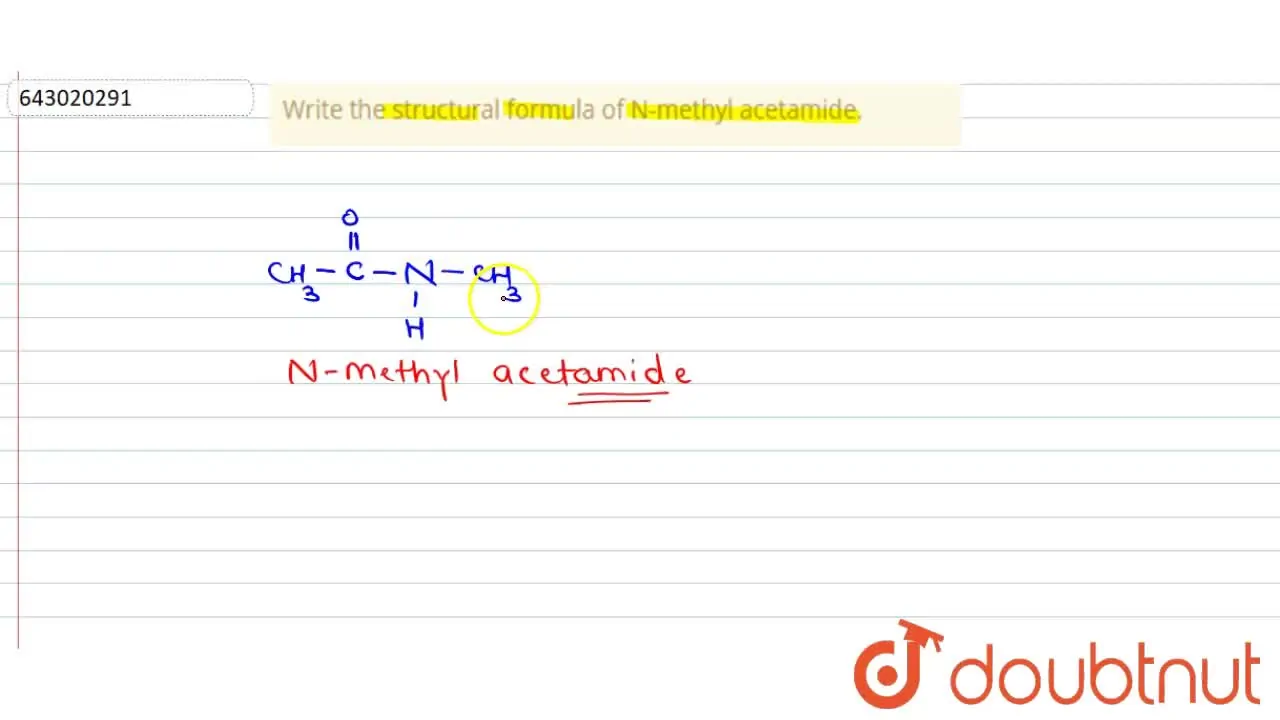 643020291
Write the structural formula of N-methyl acetamide.
O
||
CH3 - C - N - CH3
|
H
N-methyl acetamide
doubtnut